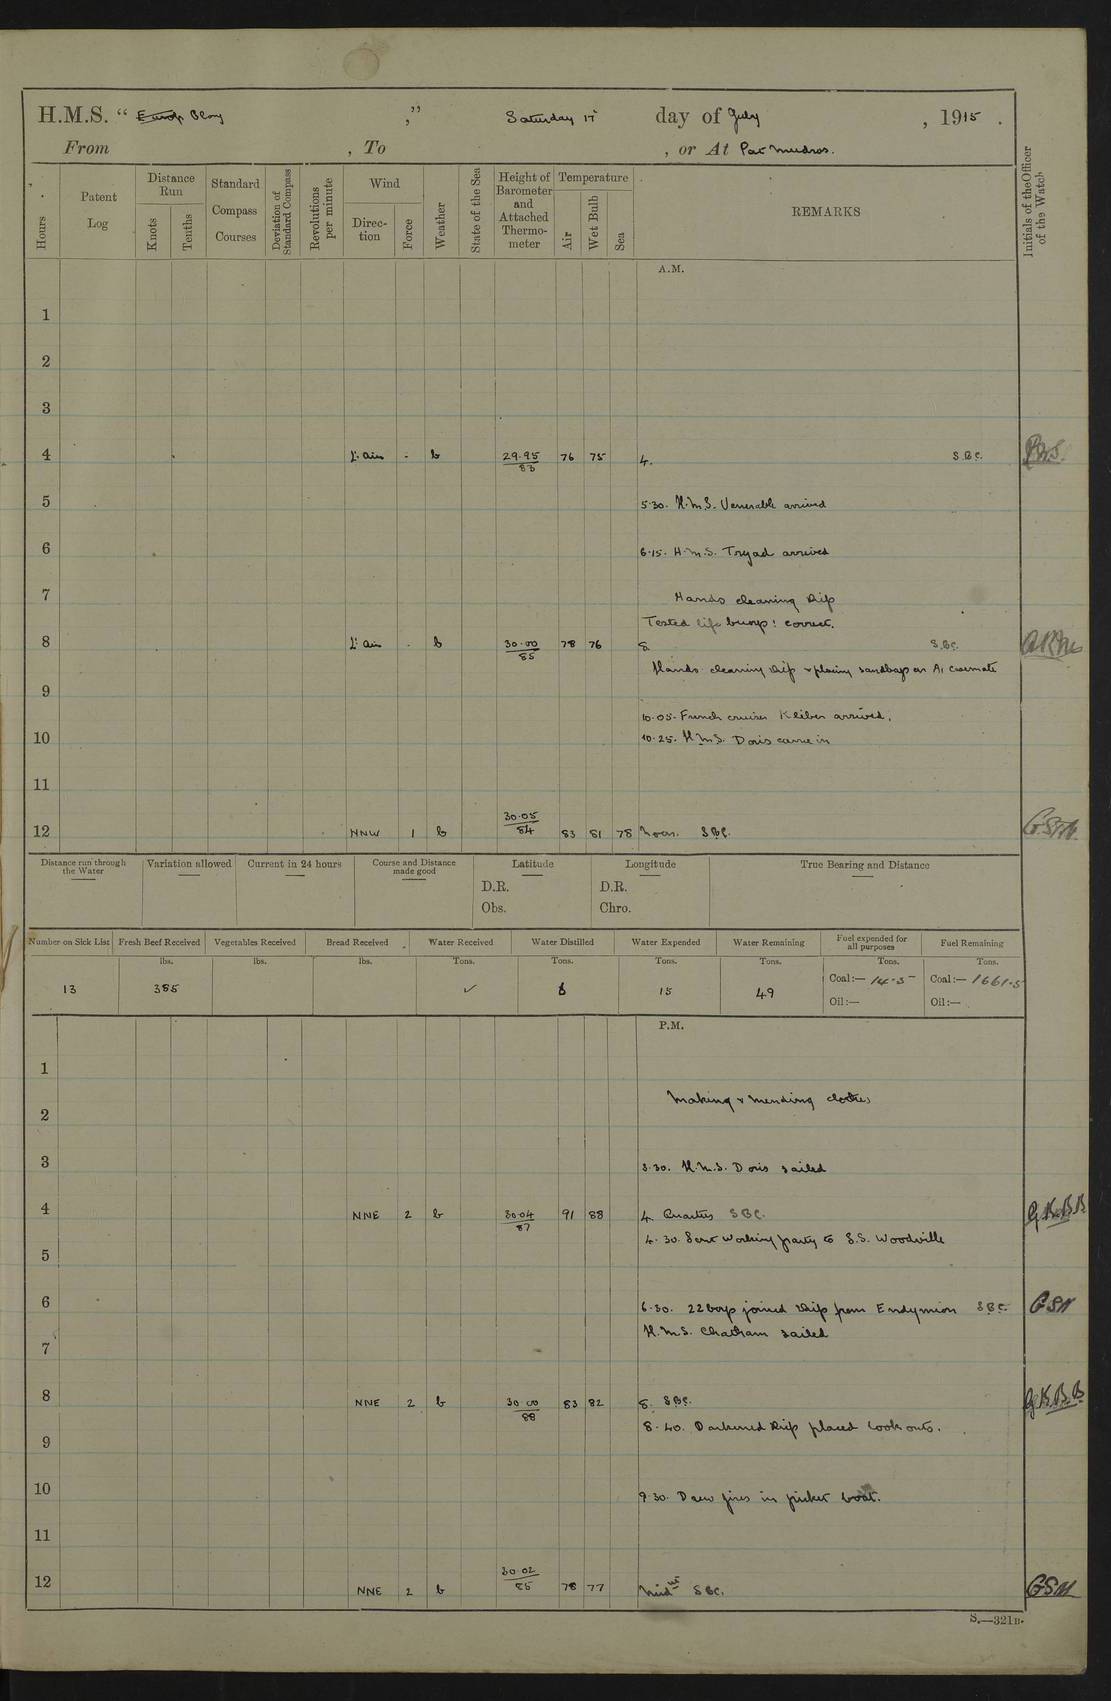 H.M.S. " Glory ," Saturday 17 day of July , 1915 .
From , To , or At Port Mudros.
Hours
Patent Log
Distance Run
Knots
Tenths
Standard Compass Courses
Deviation of Standard Compass
Revolutions per minute
Wind
Direction
Force
Weather
State of the Sea
Height of Barometer and Attached Thermometer
Temperature
Air
Wet Bulb
Sea
REMARKS
Initials of the Officer of the Watch
A.M.
1
2
3
4 Lt. airs - b 29.95 83 76 75 4. S.B.C.
5 5.30. H.M.S. Venerable arrived
6 6.15. H.M.S. Tryad arrived
7 Hands cleaning ship
Tested life buoys: correct.
8 Lt airs - b 30.00 85 78 76 8. S.B.C.
Hands cleaning ship & placing sandbags on A1 casemate
9
10.05. French cruiser Kleber arrived.
10 10.25. H.M.S. Doris came in
11
12 NNW 1 b 30.05 84 83 81 78 Noon. S.B.C.
Distance run through the Water
Variation allowed
Current in 24 hours
Course and Distance made good
Latitude
Longitude
True Bearing and Distance
D.R. D.R.
Obs. Chro.
Number on Sick List Fresh Beef Received Vegetables Received Bread Received Water Received Water Distilled Water Expended Water Remaining Fuel expended for all purposes Fuel Remaining
lbs. lbs. lbs. Tons. Tons. Tons. Tons. Tons. Tons.
13 385 ✓ 15 49 Coal:— 14.5 Coal:— 1661.5
Oil:— Oil:—
P.M.
1
2 Making & mending clothes
3 3.30. H.M.S. Doris sailed
4 NNE 2 b 30.04 87 91 88 4 Quarters S.B.C. G.K.B.B
4.30. Sent working party to S.S. Woodville
5
6 6.30. 22 boys joined ship from Endymion S.B.C. GSM
H.M.S. Chatham sailed
7
8 NNE 2 b 30.00 88 83 82 8. S.B.C. G.K.B.B
8.40. Darkened ship placed look outs.
9
10 9.30. Drew fires in picket boat.
11
12 NNE 2 b 30.02 85 78 77 Midnt S.B.C. GSM
S.—321B.